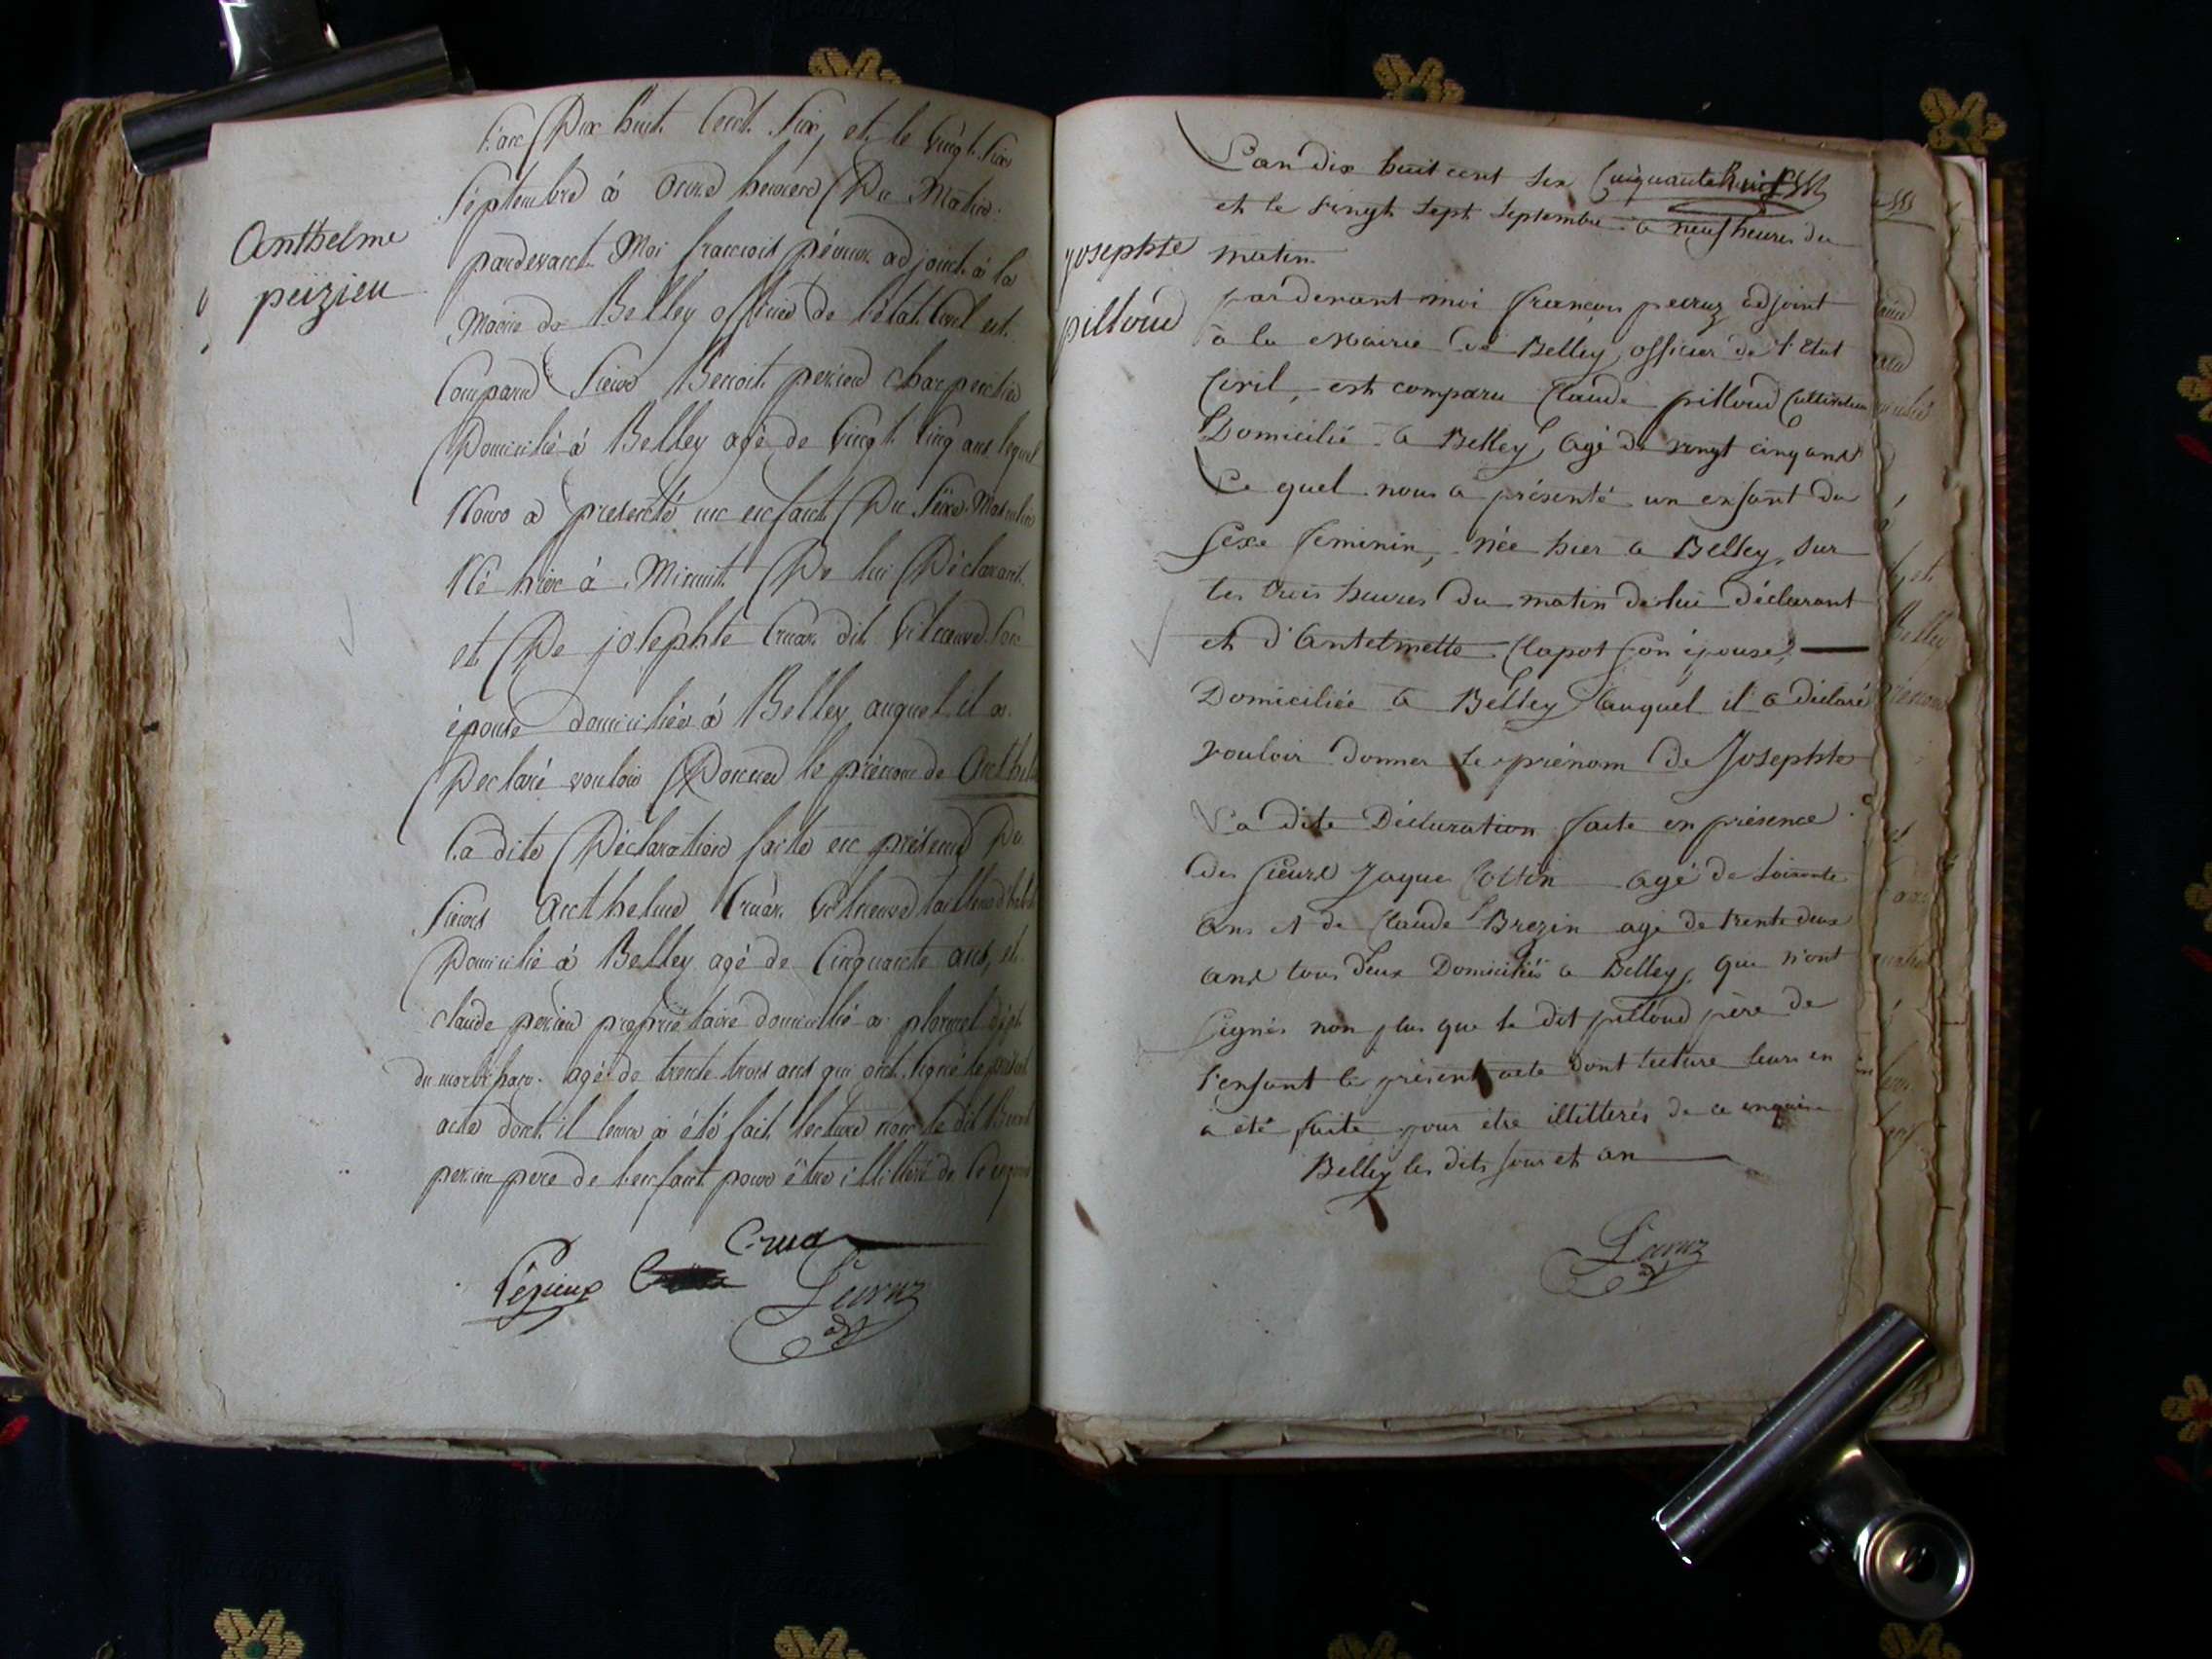 Anthelme
peizieu
L'an Dix huit Cent Six, et le vingt six
Septembre à onze heures Du Matin
pardevant Moi françois péeruz adjoint à la
Mairie de Belley officier de l'état Civil est
Comparu Sieur Benoit pezieu charpentier
Domicilié à Belley agé de Vingt Cinq ans lequel
Nous a presenté un enfant Du Sexe Masculin
Né hier à Minuit De lui Déclarant
et De josephte Cruaz dit son
épouse domiciliée à Belley auquel il a
Déclaré vouloir Donner le prénom de Anthel
La dite Déclaration faite en présence De
Sieurs Anthelme Cruaz tailleur
Domicilié à Belley agé de Cinquante ans, et
claude pezieu propriétaire domicilié à plormel dépt
du morbihan agé de trente trois ans qui ont signé le présent
acte dont il leur a été fait lecture non le dit Benoit
pezieu pere de l'enfant pour être illitéré de ce
Cruaz
Pézieux Peeruz
adjt
josephte
pilloud
L'an dix huit cent six
et le vingt sept septembre à neuf heures du
matin
pardevant moi françois peeruz adjoint
à la Mairie de Belley, officier de l'Etat
Civil, est comparu Claude pilloud Cultivateur
Domicilié à Belley, agé de vingt cinq ans
Le quel nous a présenté un enfant du
Sexe feminin, née hier à Belley, sur
les trois heures du matin de lui déclarant
et d'Antelmette Clapot son épouse,
Domiciliée à Belley auquel il a déclaré
vouloir donner le prénom de Josephte
La dite Déclaration faite en présence
des sieurs Jaque Cottin agé de soixante
ans et de Claude Brezin agé de trente deux
ans tous deux Domiciliés à Belley, qui n'ont
signés non plus que le dit pilloud père de
l'enfant le présent acte dont lecture leurs en
a été faite pour etre illitterés de ce enquis
Belley les dits jour et an
Peeruz
adjt